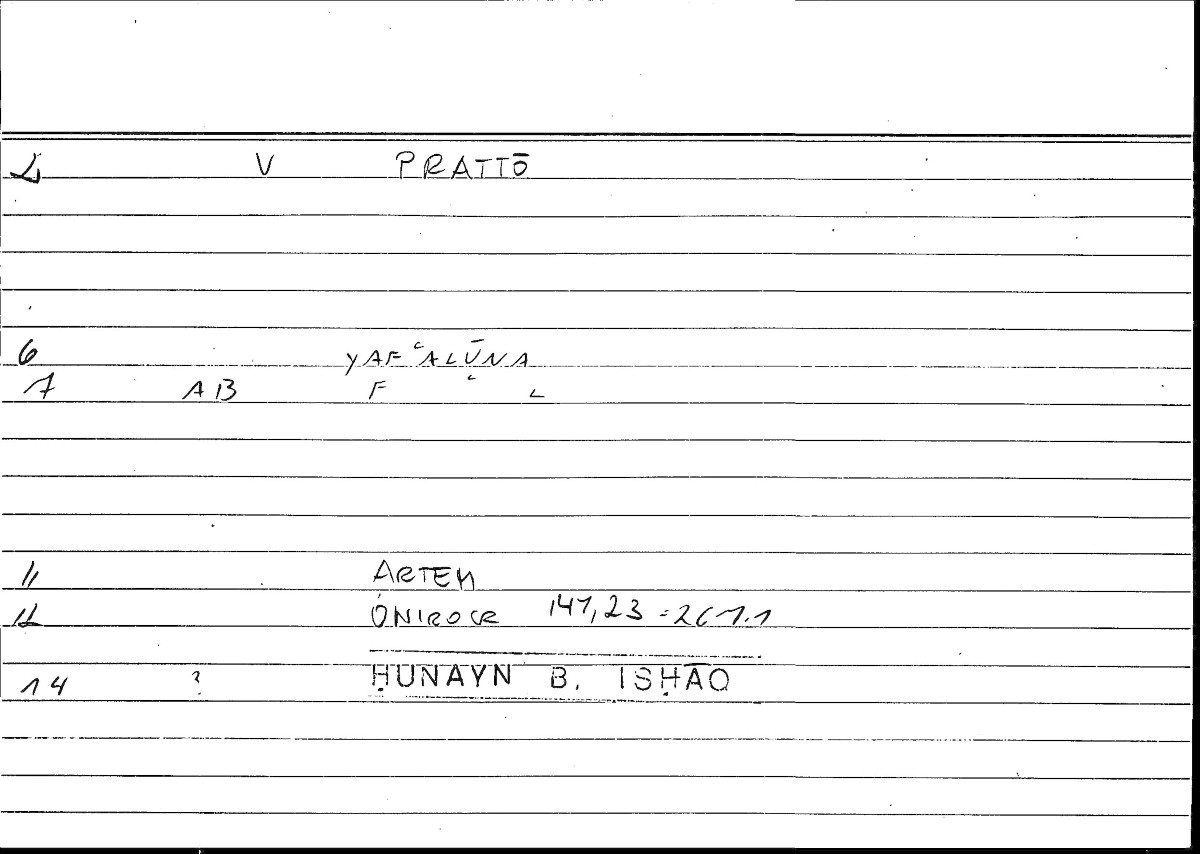 2 V PRATTŌ
6 YAFʿALŪNA
7 AB F ʿ L
11 ARTEM
12 ONIROCR 147,23 = 267.1
14 ? ḤUNAYN B. ISḤĀQ